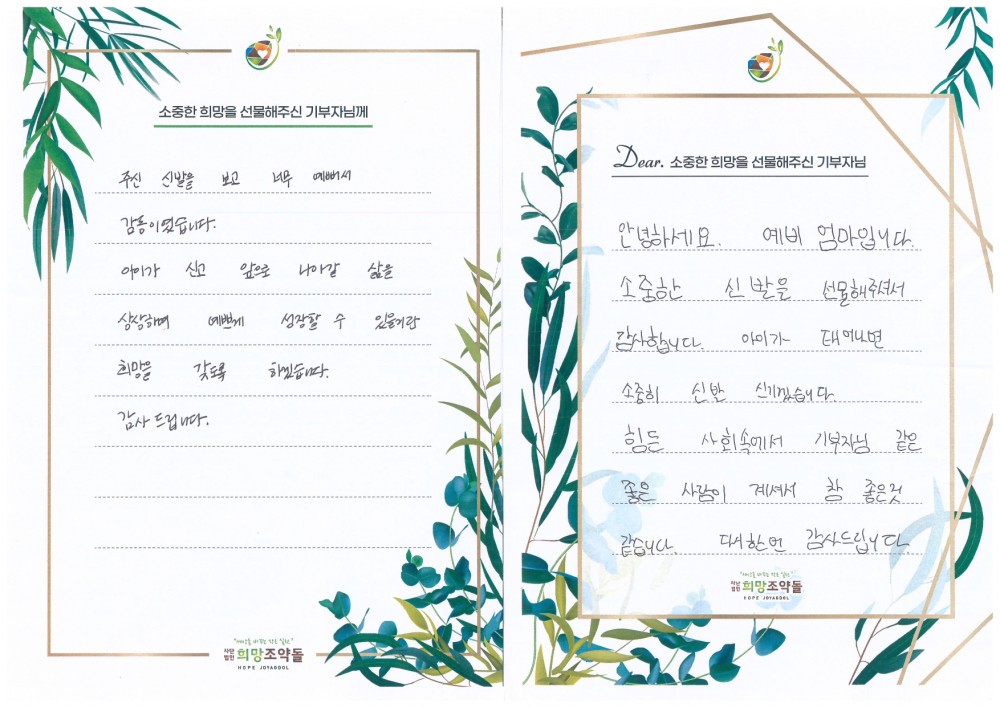 소중한 희망을 선물해주신 기부자님께
주신 신발을 보고 너무 예뻐서
감동이었습니다.
아이가 신고 앞으로 나아갈 삶을
상상하며 예쁘게 성장할 수 있을거란
희망을 갖도록 하겠습니다.
감사 드립니다.
"세상을 바꾸는 작은 힘"
사단법인 희망조약돌
HOPE JOYAGDOL
Dear. 소중한 희망을 선물해주신 기부자님
안녕하세요. 예비 엄마입니다.
소중한 신발을 선물해주셔서
감사합니다. 아이가 태어나면
소중히 신발 신기겠습니다
힘든 사회속에서 기부자님 같은
좋은 사람이 계셔서 참 좋은것
같습니다. 다시한번 감사드립니다
사단법인 희망조약돌
HOPE JOYAGDOL